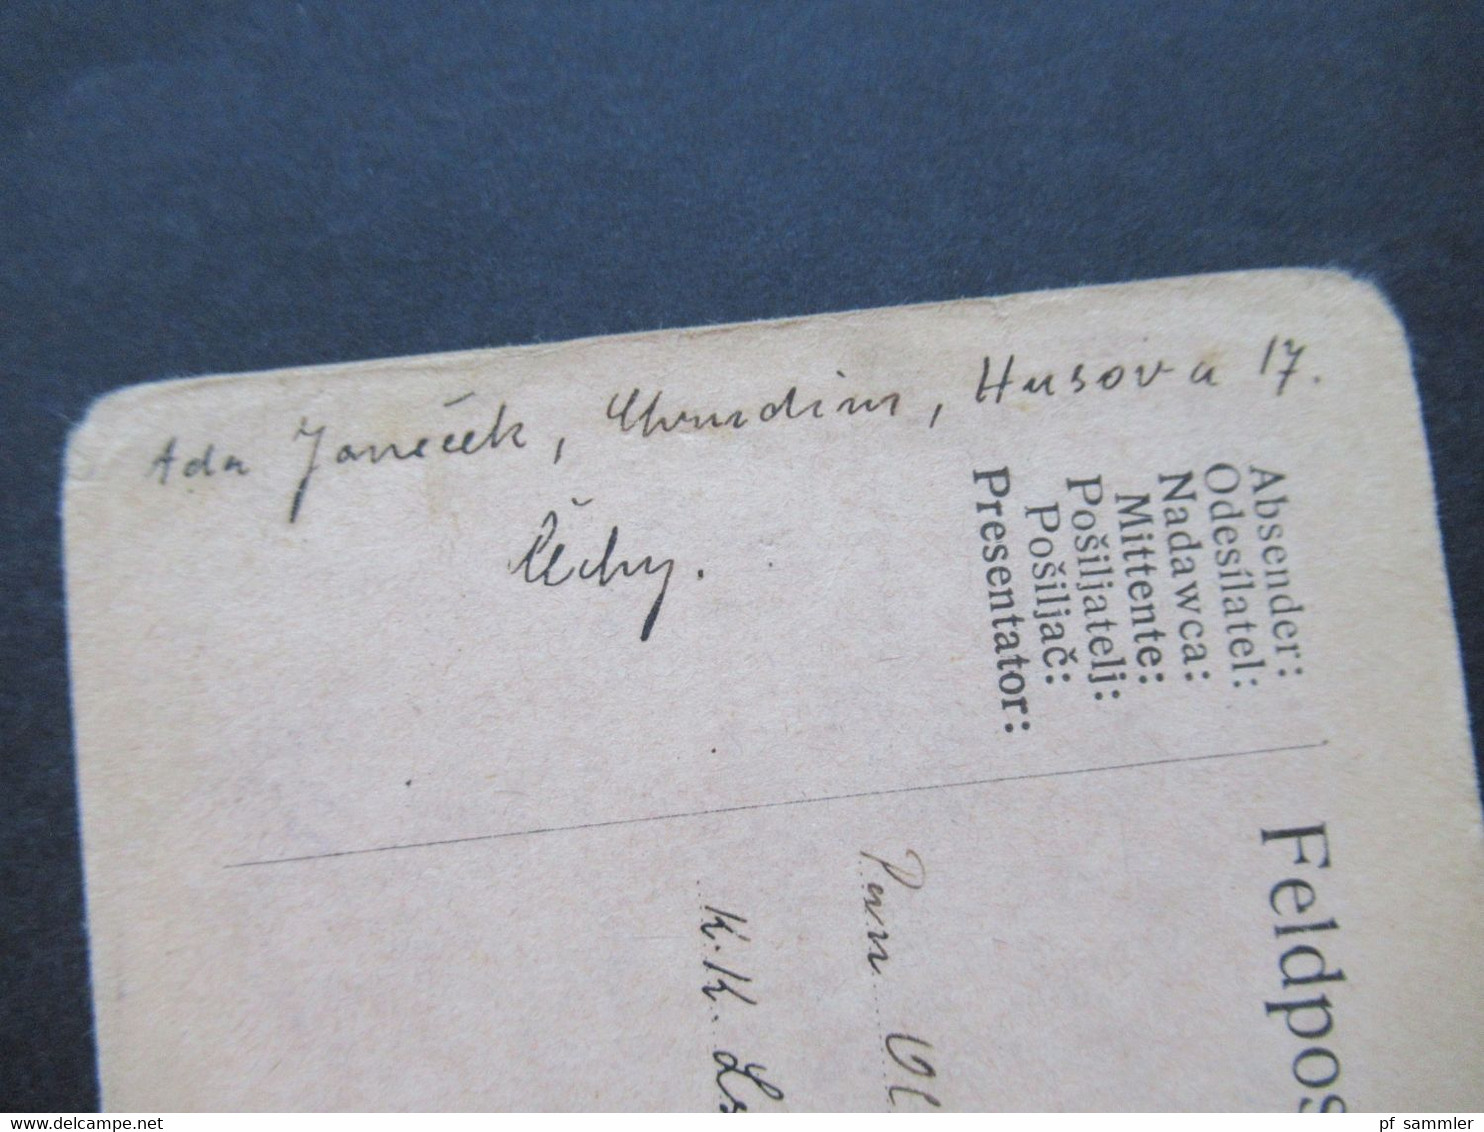 Ada Janeček, Chrudim, Husova 17.
Čechy.
Absender:
Odesílatel:
Nadawca:
Mittente:
Pošiljatelj:
Pošiljač:
Presentator:
Feldpos
Pan Vl
K.K. Ls
delcampe.net
pf_sammler